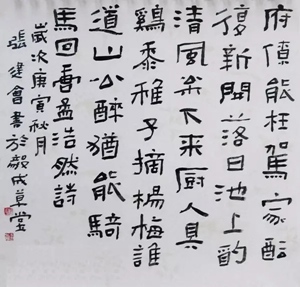 府僚能枉駕家醖
復新開落日池上酌
清風松下来厨人具
鷄黍稚子摘楊梅誰
道山公醉猶能騎
馬回孟浩然詩
歲次庚寅秋月
張建會書於毅成草堂